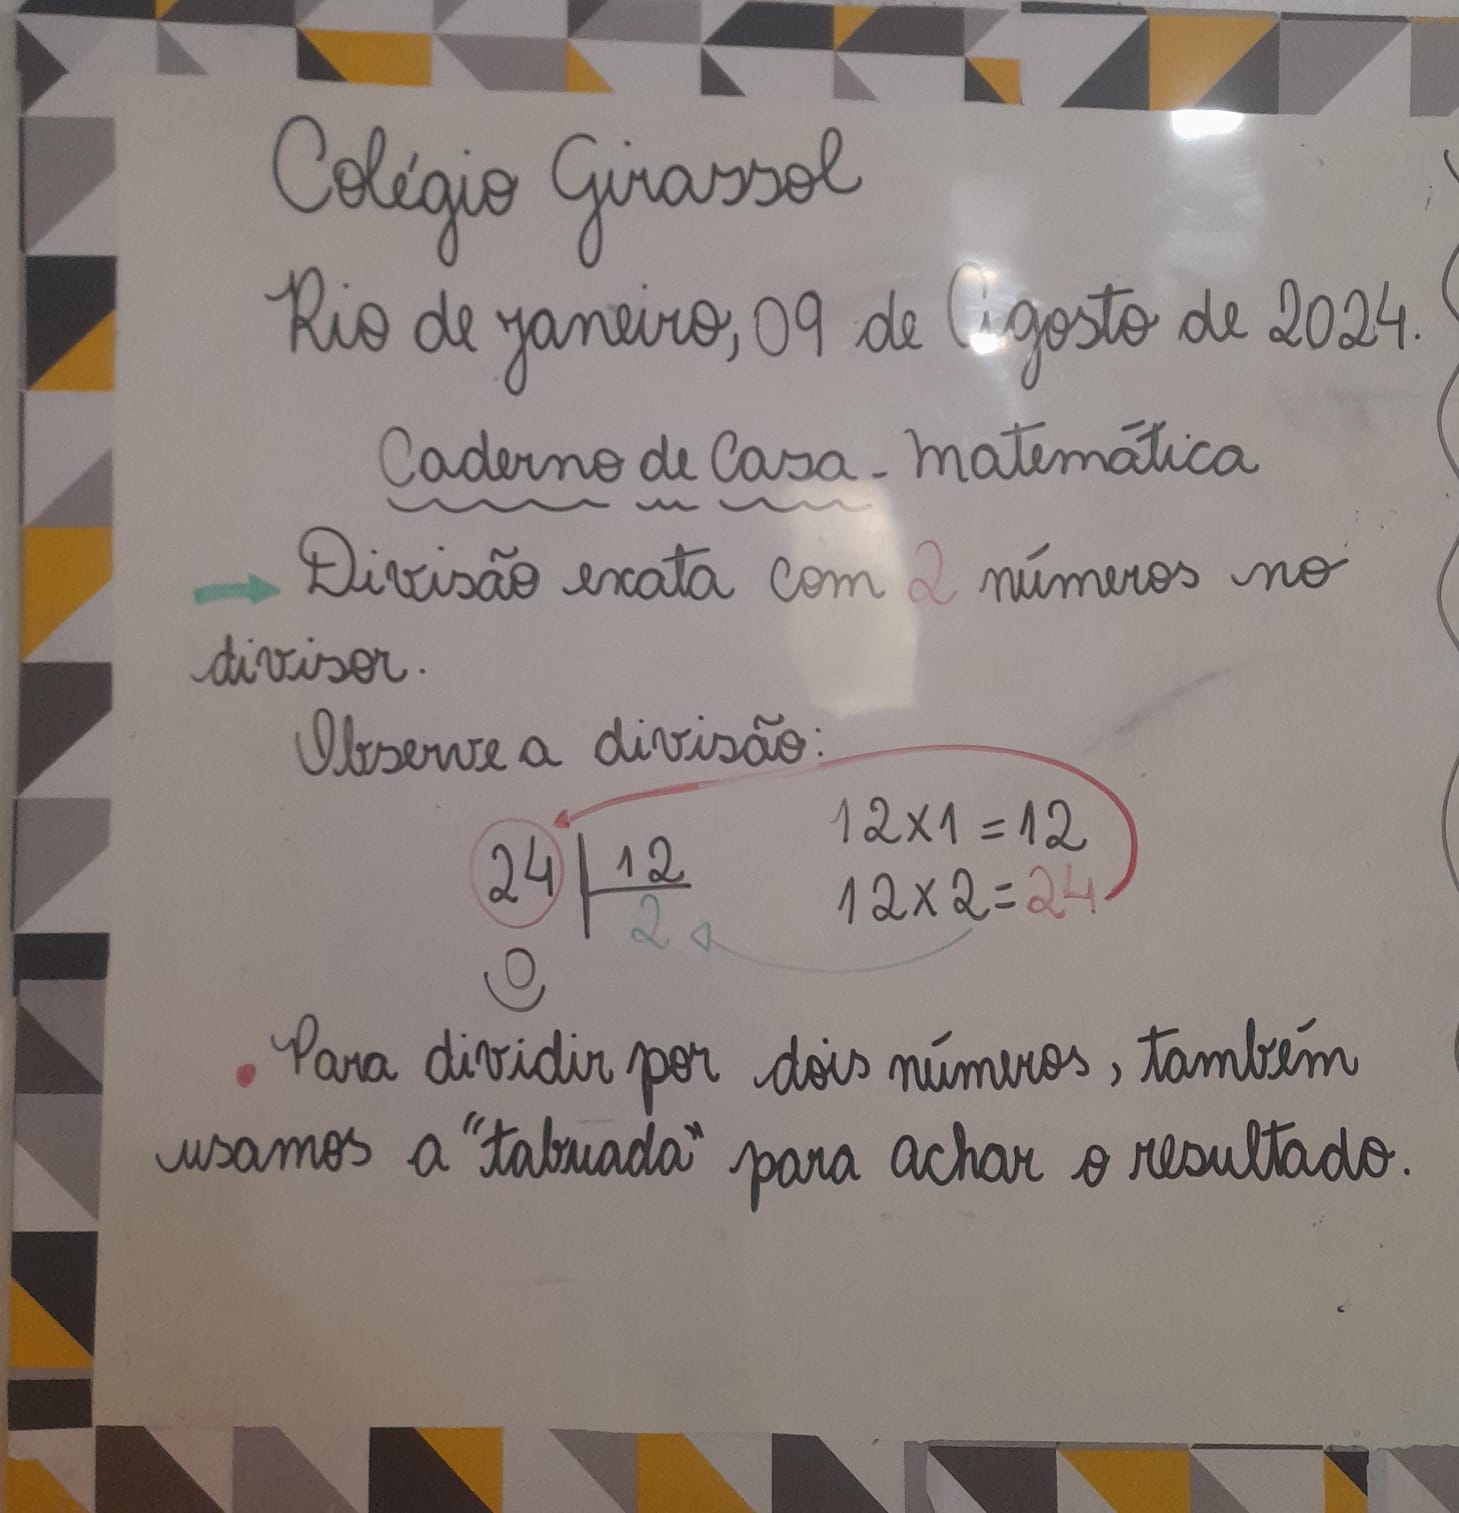 Colégio Girassol
Rio de janeiro, 09 de Agosto de 2024.
Caderno de Casa - matemática
→ Divisão exata com 2 números no
divisor.
Observe a divisão:
12x1=12
24 | 12
2
12x2=24
0
. Para dividir por dois números, também
usamos a "tabuada" para achar o resultado.